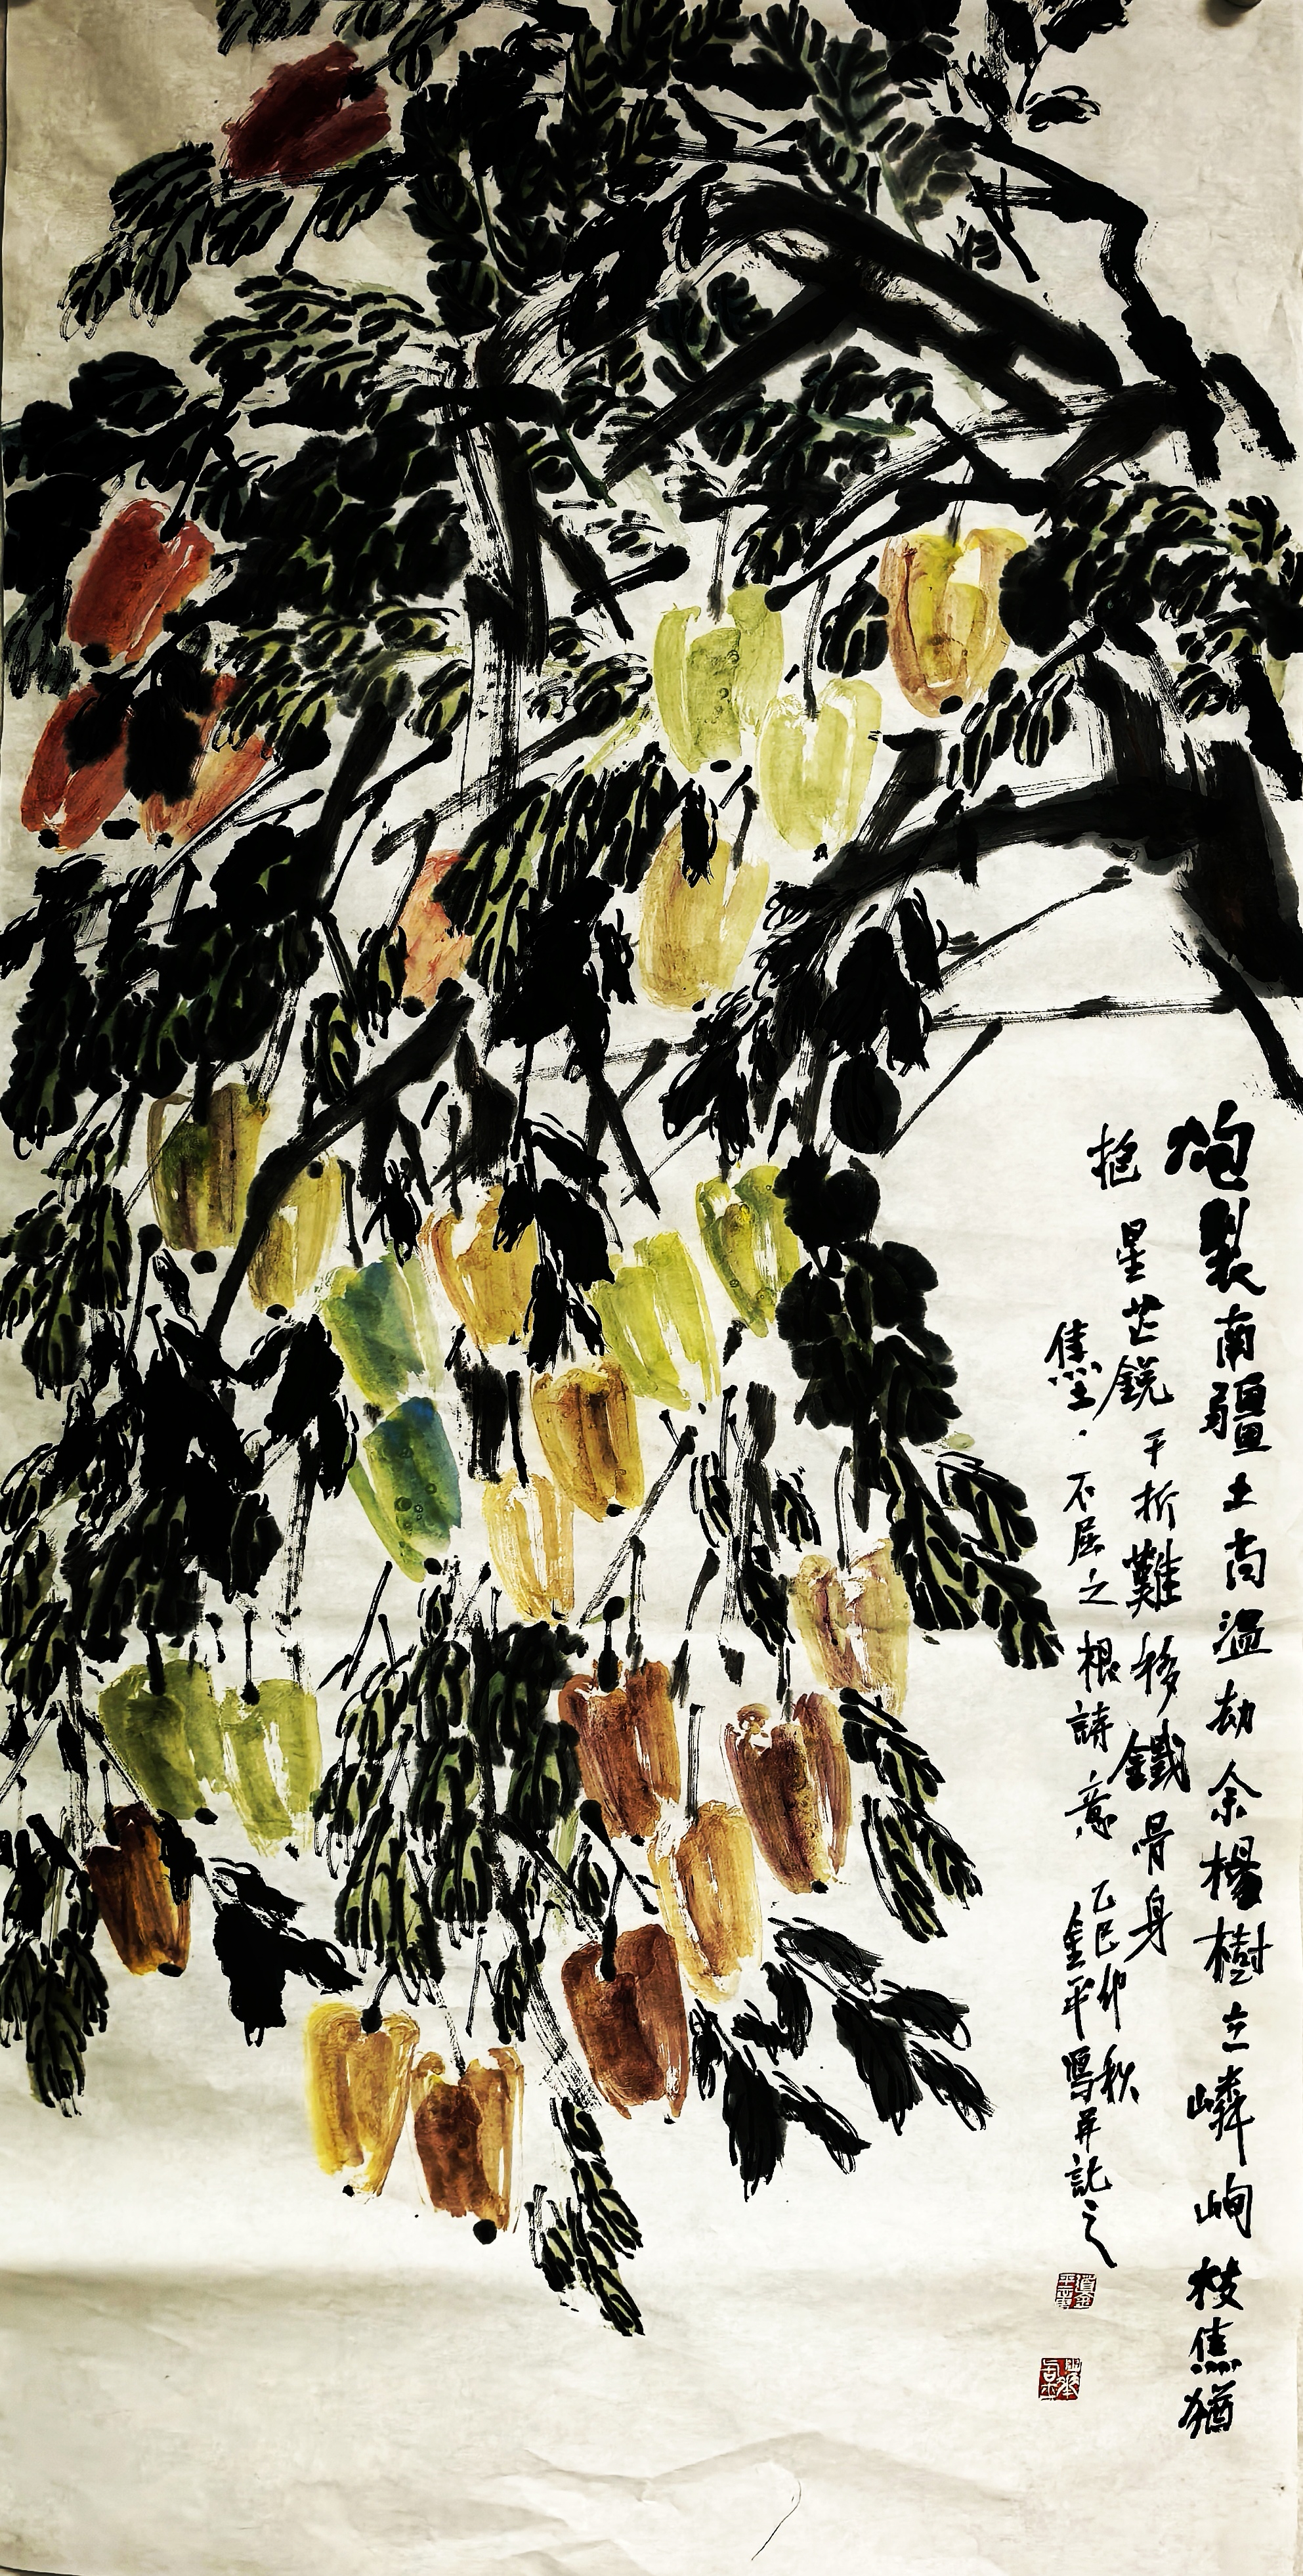 炮裂南疆土尚溫劫余楊樹立嶙峋枝焦猶
抱星芒銳干折難移鐵骨身
焦土·不屈之根詩意乙巳仲秋
金平寫并記之